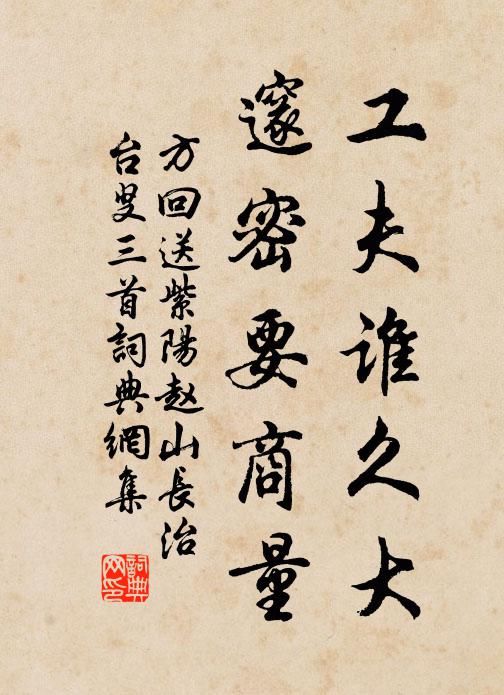 工夫谁久大
邃密要商量
方回送紫陽赵山長治
台叟三首詞典網集
詞典网印